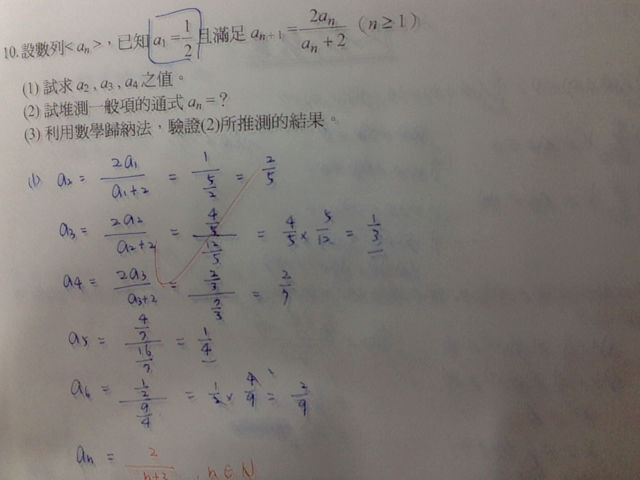 10.設數列<aₙ>，已知 a₁ = 1/2 且滿足 aₙ₊₁ = 2aₙ/(aₙ+2) (n≥1)
(1) 試求 a₂, a₃, a₄ 之值。
(2) 試堆測一般項的通式 aₙ = ?
(3) 利用數學歸納法，驗證(2)所推測的結果。
(1) a₂ = 2a₁/(a₁+2) = 1/(5/2) = 2/5
a₃ = 2a₂/(a₂+2) = (4/5)/(12/5) = 4/5 × 5/12 = 1/3
a₄ = 2a₃/(a₃+2) = (2/3)/(7/3) = 2/7
a₅ = (4/7)/(16/7) = 1/4
a₆ = (1/2)/(9/4) = 1/2 × 4/9 = 2/9
aₙ = 2/(n+3), n∈N